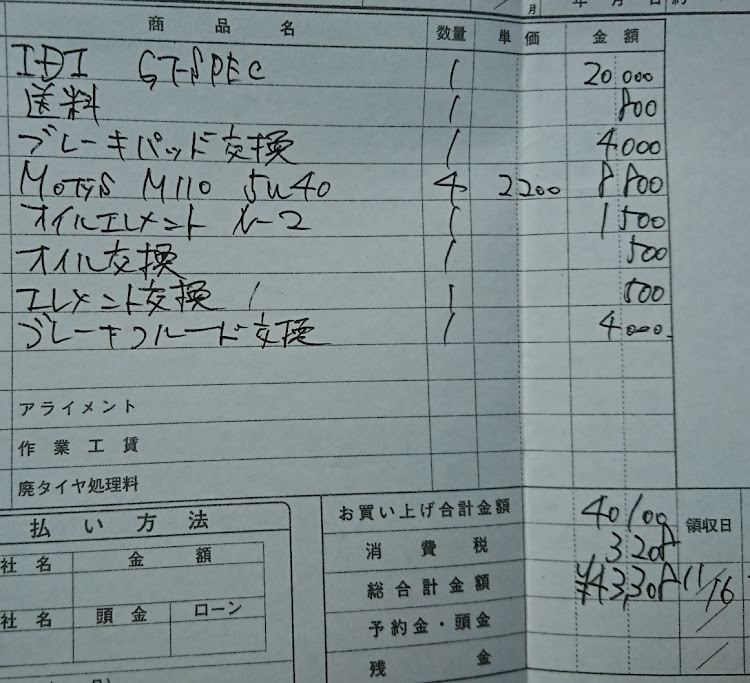 年 月 日
月
商品名 数量 単価 金額
IDI GT-SPEC 1 20000
送料 1 800
ブレーキパッド交換 1 4000
Motys M110 5w40 4 2200 8800
オイルエレメント N-2 1 1500
オイル交換 1 500
エレメント交換 1 500
ブレーキフルード交換 1 4000
アライメント
作業工賃
廃タイヤ処理料
お買い上げ合計金額 40100 領収日
消費税 3208
総合計金額 ¥43,308 11/16
予約金・頭金
残金
払い方法
社名 金額
社名 頭金 ローン